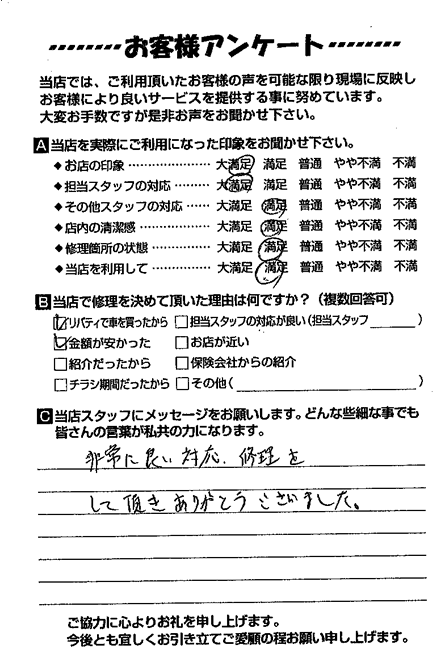 お客様アンケート
当店では、ご利用頂いたお客様の声を可能な限り現場に反映し
お客様により良いサービスを提供する事に努めています。
大変お手数ですが是非お声をお聞かせ下さい。
A 当店を実際にご利用になった印象をお聞かせ下さい。
◆お店の印象 ………………… 大満足 満足 普通 やや不満 不満
◆担当スタッフの対応 ……… 大満足 満足 普通 やや不満 不満
◆その他スタッフの対応 …… 大満足 満足 普通 やや不満 不満
◆店内の清潔感 ……………… 大満足 満足 普通 やや不満 不満
◆修理箇所の状態 …………… 大満足 満足 普通 やや不満 不満
◆当店を利用して …………… 大満足 満足 普通 やや不満 不満
B 当店で修理を決めて頂いた理由は何ですか?(複数回答可)
☑リバティで車を買ったから □担当スタッフの対応が良い(担当スタッフ______)
☑金額が安かった □お店が近い
□紹介だったから □保険会社からの紹介
□チラシ期間だったから □その他(____________________)
C 当店スタッフにメッセージをお願いします。どんな些細な事でも
皆さんの言葉が私共の力になります。
非常に良い対応、修理を
して頂きありがとうございました。
ご協力に心よりお礼を申し上げます。
今後とも宜しくお引き立てご愛顧の程お願い申し上げます。